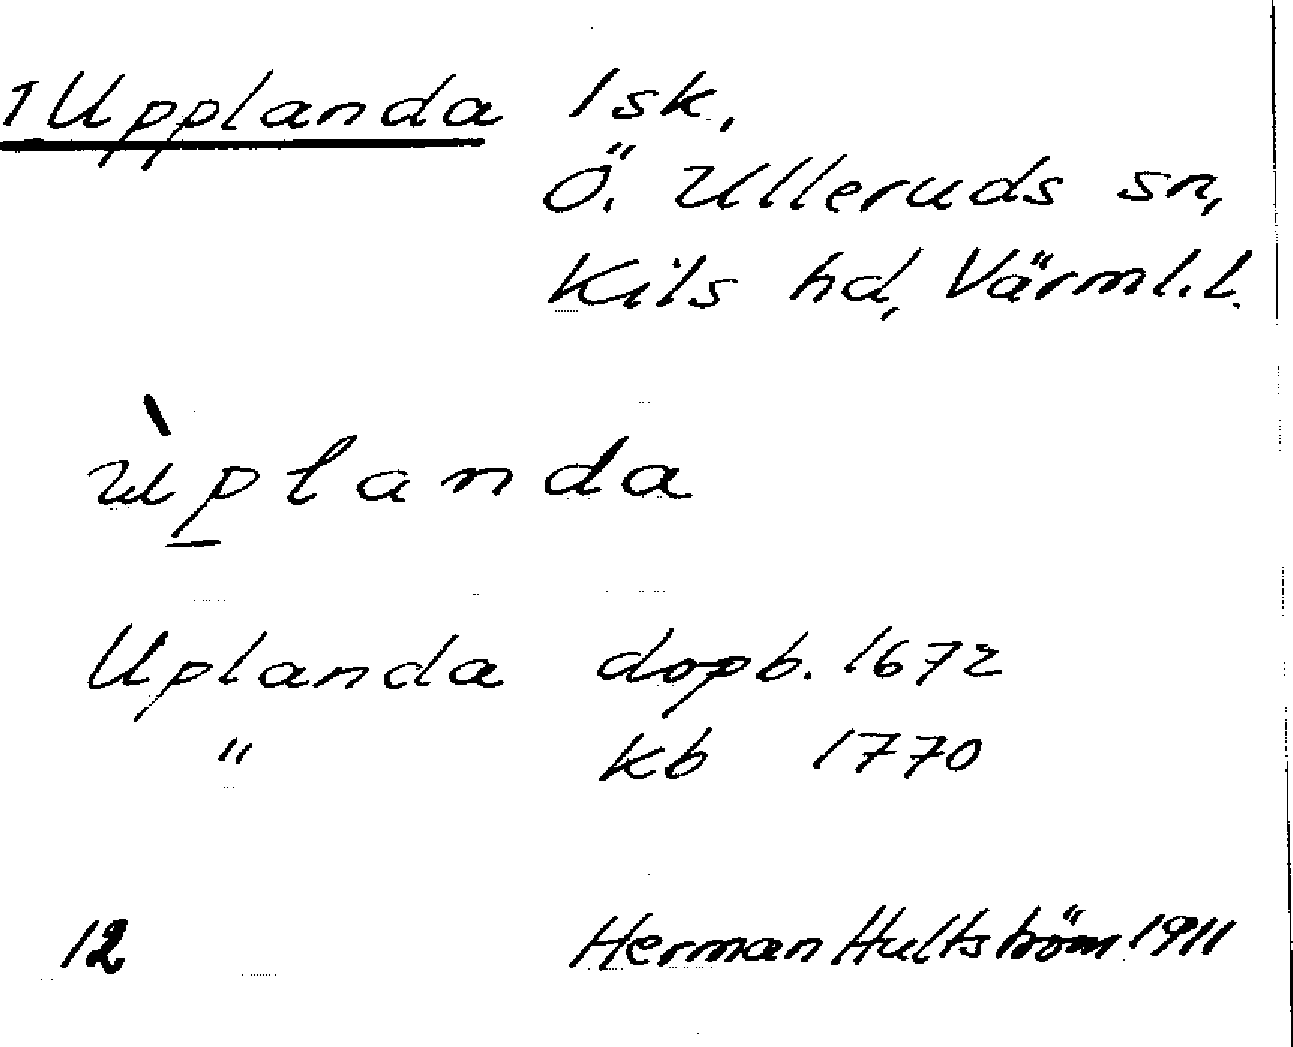 1 Upplanda lsk.
Ö. Ulleruds sn,
Kils hd, Värml.l.
ùplanda
Uplanda dopb. 1672
" kb 1770
12 Herman Hultström 1911